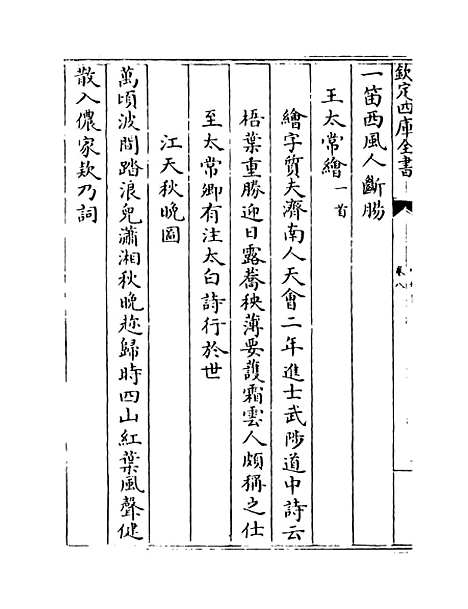 欽定四庫全書
卷八
一笛西風人斷腸
王太常繪一首
繪字質夫濟南人天會二年進士武陟道中詩云
梧葉重勝迎日露蕎秧薄要護霜雲人頗稱之仕
至太常卿有注太白詩行於世
江天秋晚圖
萬頃波間踏浪兒瀟湘秋晚趂歸時四山紅葉風聲健
散入儂家欸乃詞